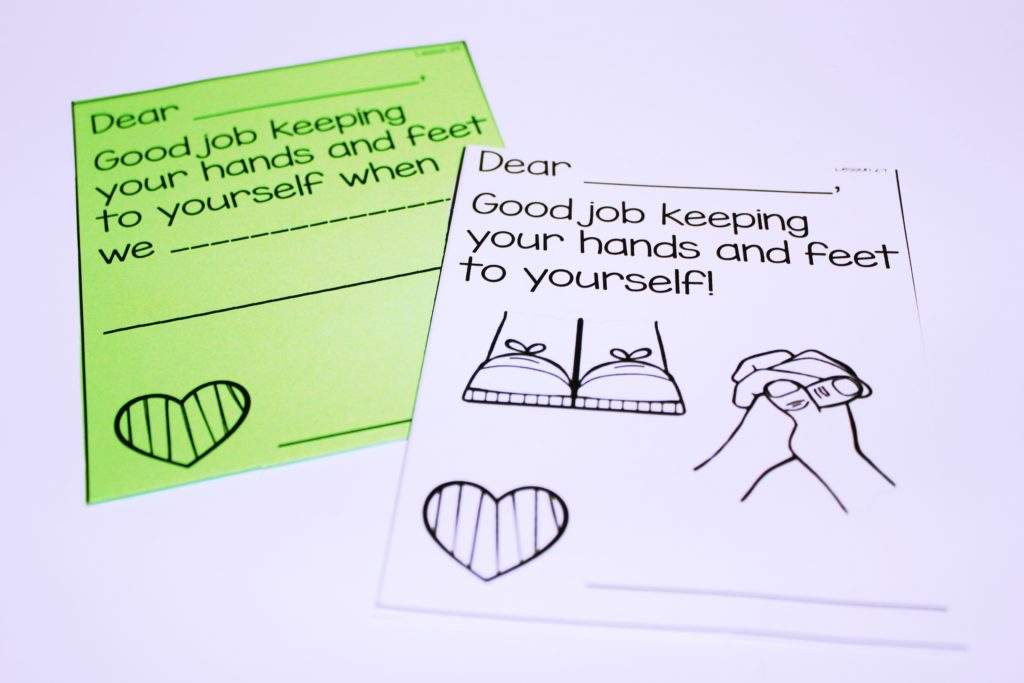 Lesson 29
Dear ____________,
Good job keeping
your hands and feet
to yourself when
we ____________
Lesson 29
Dear ____________,
Good job keeping
your hands and feet
to yourself!